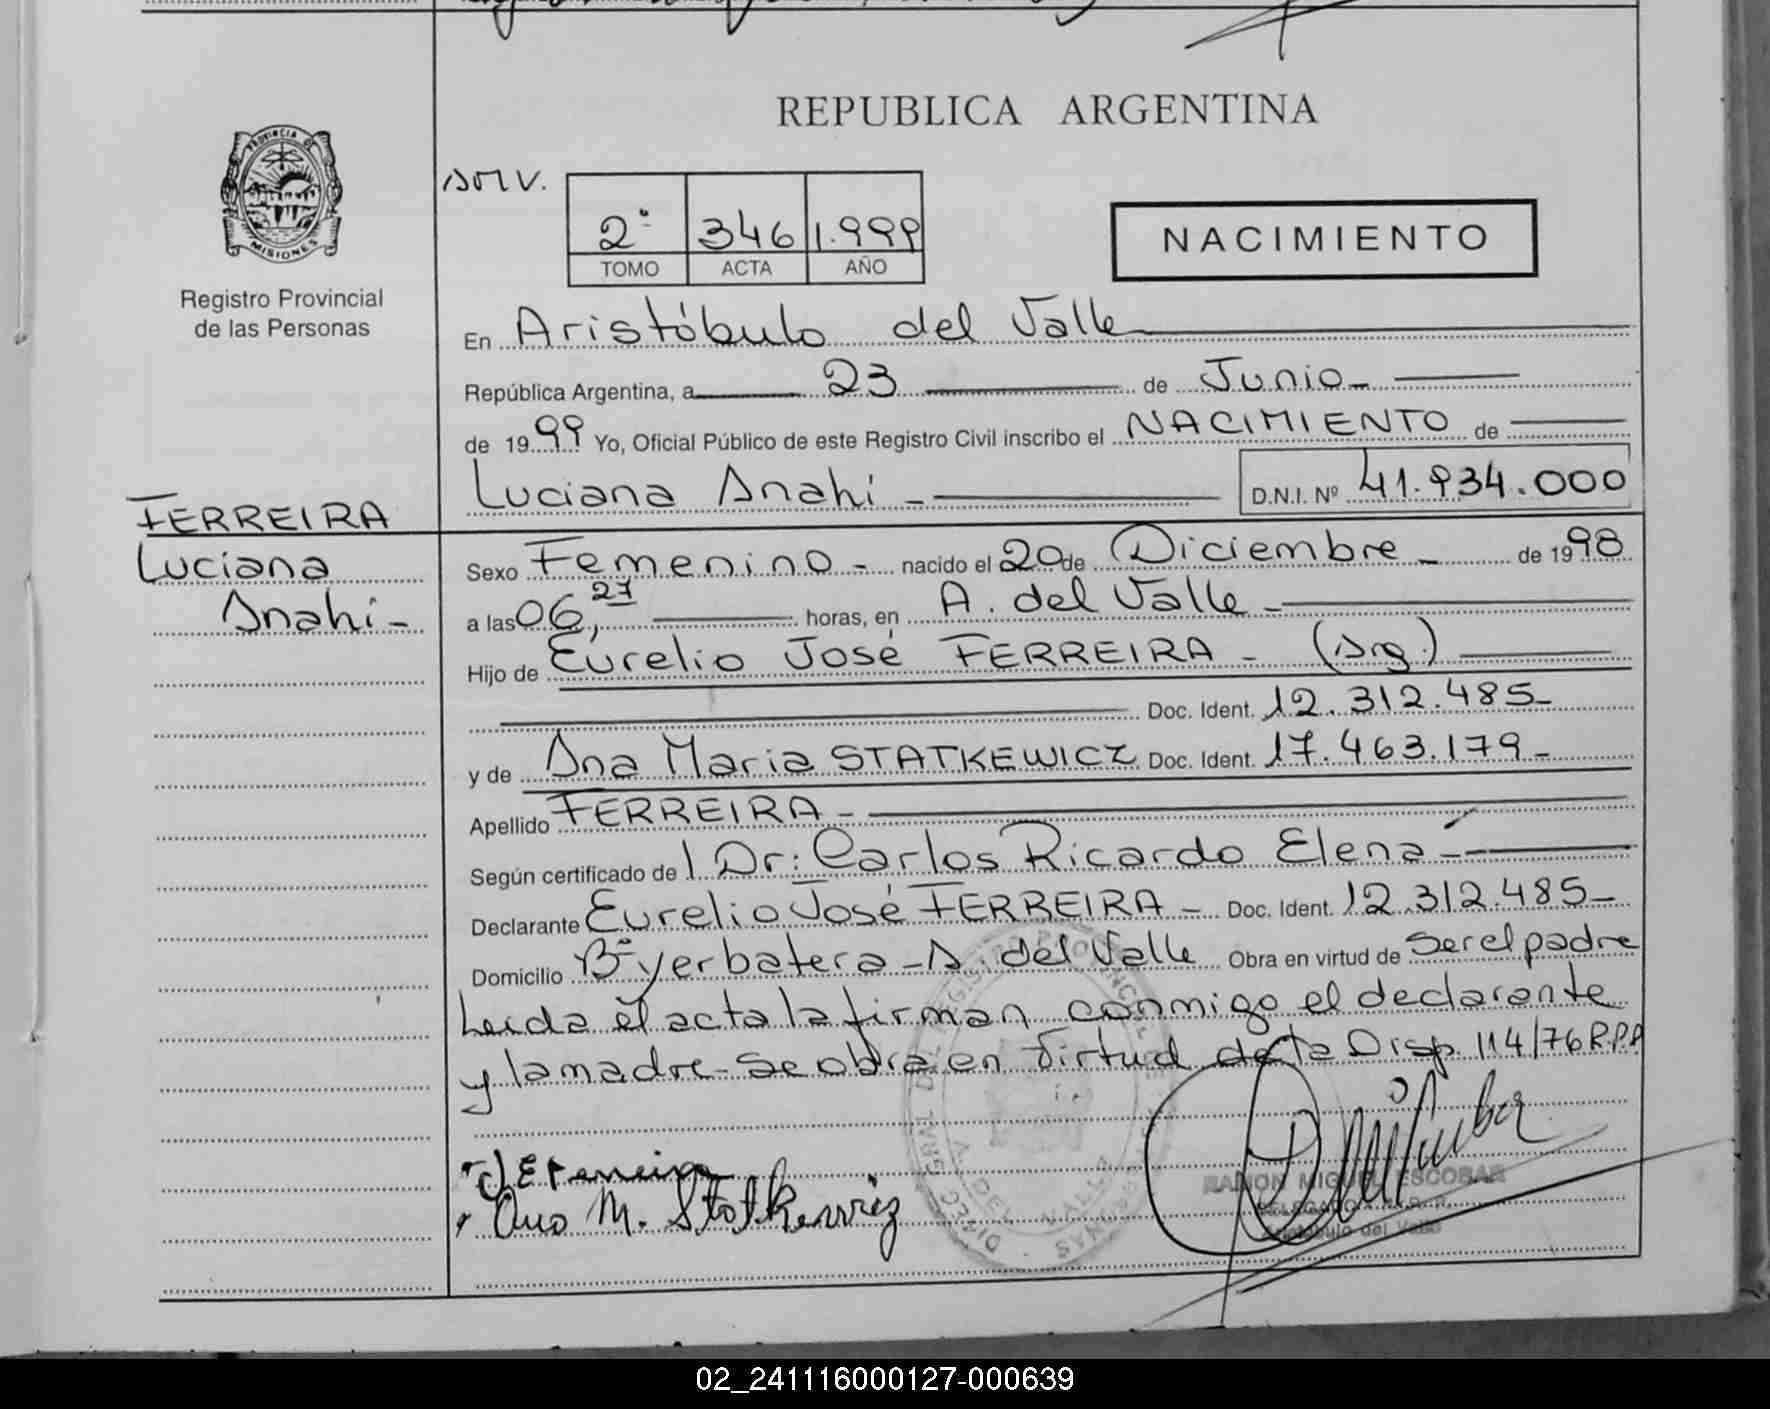 REPUBLICA ARGENTINA
PROVINCIA DE
MISIONES
Registro Provincial
de las Personas
2º 346 1.999
TOMO ACTA AÑO
NACIMIENTO
En Aristóbulo del Valle
República Argentina, a 23 de Junio
de 1999 Yo, Oficial Público de este Registro Civil inscribo el NACIMIENTO de
Luciana Anahi - D.N.I. Nº 41.934.000
FERREIRA
Luciana
Anahi -
Sexo Femenino - nacido el 20 de Diciembre - de 1998
a las 06,27 horas, en A. del Valle -
Hijo de Eurelio José FERREIRA - (Arg.)
Doc. Ident. 12.312.485-
y de Ana Maria STATKEWICZ Doc. Ident. 17.463.179-
Apellido FERREIRA -
Según certificado de l Dr: Carlos Ricardo Elena -
Declarante Eurelio José FERREIRA - Doc. Ident. 12.312.485-
Domicilio Bº yerbatera - A. del Valle Obra en virtud de ser el padre
Leida el acta la firman conmigo el declarante
y la madre - se obra en virtud de la Disp. 114/76 R.P.P
E Ferreira
Ana M. Statkewicz
RAMON MIGUEL ESCOBAR
DELEGADO R.P.P.
Aristóbulo del Valle
A. DEL VALLE
02_241116000127-000639